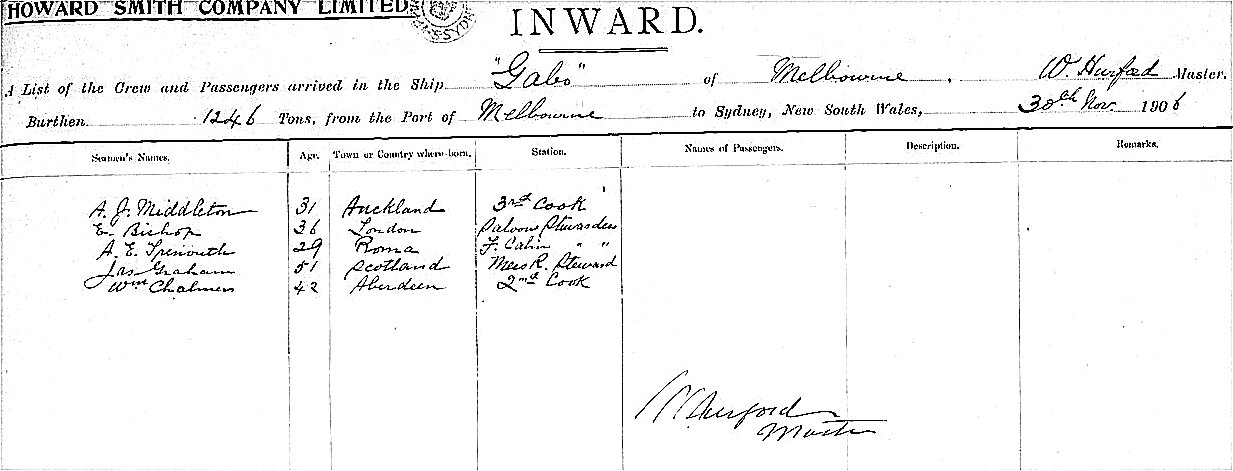 HOWARD SMITH COMPANY LIMITED
INWARD.
A List of the Crew and Passengers arrived in the Ship "Gabo" of Melbourne, W. Hurford Master.
Burthen 1246 Tons, from the Port of Melbourne to Sydney, New South Wales, 30th Nov 1906
Seamen's Names. Age. Town or Country where born. Station. Names of Passengers. Description. Remarks.
A. J. Middleton 31 Auckland 3rd Cook
E. Bishop 36 London Saloon Stewardess
A. E. Trenouth 29 Roma F. Cabin " "
Jas Graham 51 Scotland Mess R. Steward
Wm Chalmers 42 Aberdeen 2nd Cook
W Hurford
Master